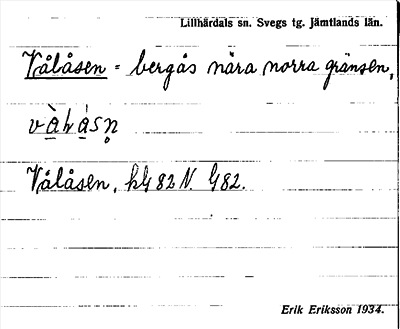 Lillhärdals sn. Svegs tg. Jämtlands län.
Vålåsen = bergås nära norra gränsen,
Vålåsen, hG 82 N. G82.
Erik Eriksson 1934.